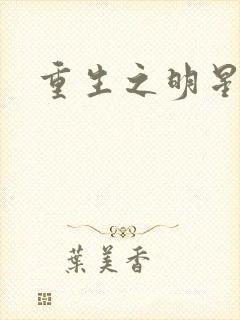 重生之明星
葉美香